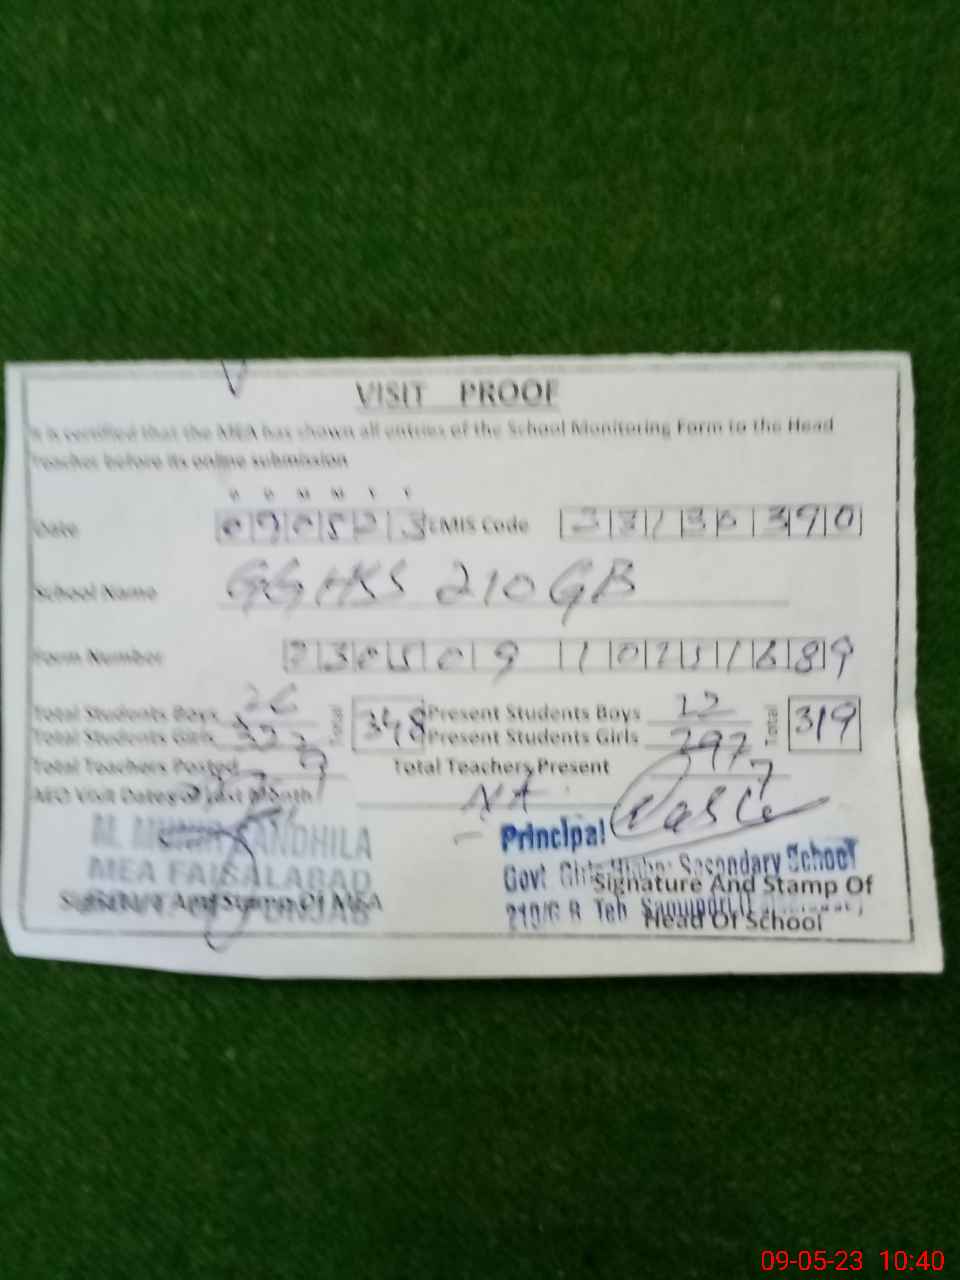 VISIT PROOF
It is certified that the MEA has shown all entries of the School Monitoring Form to the Head
Teacher before its online submission
D D M M Y Y
Date 090523 EMIS Code 33130390
School Name GGHSS 210 GB
Form Number 230509
Total Students Boys 26 Total 348 Present Students Boys Total 319
Total Students Girls Present Students Girls 297
Total Teachers Posted 9 Total Teachers Present 7
AEO Visit Dates of Last Month NA
M. MUNIR SANDHILA
MEA FAISALABAD
Signature And Stamp Of MEA
Principal
Govt Girls Higher Secondary School
Signature And Stamp Of
210/G.B Teh
Head Of School
09-05-23 10:40